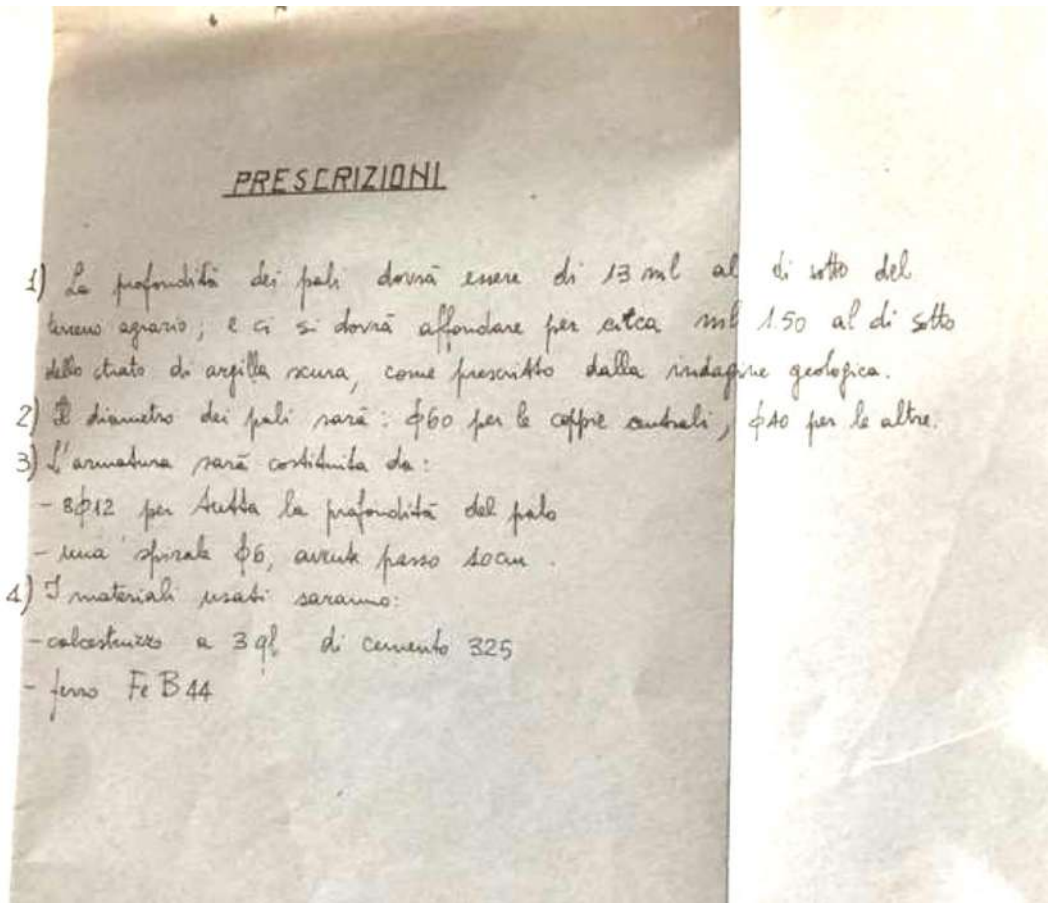 PRESCRIZIONI
1) La profondità dei pali dovrà essere di 13 ml al di sotto del
terreno agrario; e ci si dovrà affondare per circa ml 1.50 al di sotto
dello strato di argilla scura, come prescritto dalla indagine geologica.
2) Il diametro dei pali sarà: ϕ60 per le coppie centrali, ϕ40 per le altre.
3) L'armatura sarà costituita da:
- 8ϕ12 per tutta la profondità del palo
- una spirale ϕ6, avente passo 10cm.
4) I materiali usati saranno:
- calcestruzzo a 3 ql di cemento 325
- ferro Fe B 44